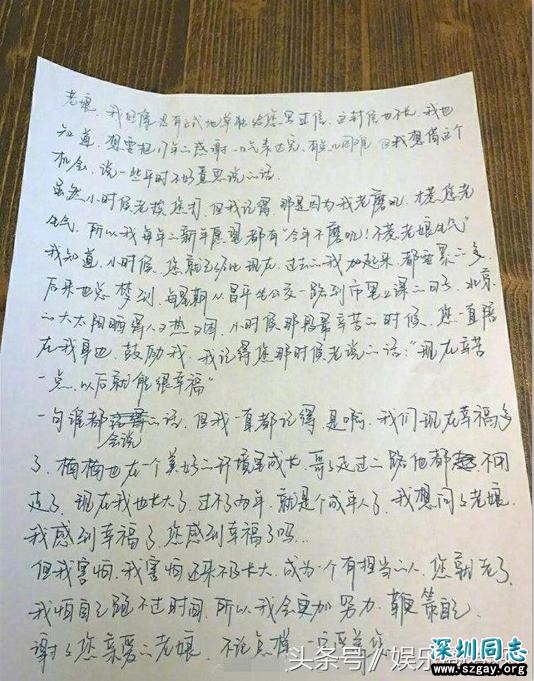 老娘，我好像没有正式地单独给您写过信，这封信也不长，我也
知道，想要把17年的感谢一口气表达完，有点儿困难，但我想借这个
机会，说一些平时不好意思说的话。
虽然小时候老挨您打，但我记得，那是因为我老磨叽，才惹您老
生气，所以我每年的新年愿望都有“今年不磨叽！不惹老娘生气”
我知道，小时候，您就已经比现在、过去的我加起来都要累的多，
后来也总梦到，每星期从昌平坐公交一路到市里上课的日子，北京
的大太阳晒得人又热又困，小时候那段最辛苦的时候，您一直陪
在我身边，鼓励我，我记得您那时候老说的话：“现在辛苦
一点，以后就能很幸福”
一句谁都会说的话，但我一直都记得，是啊，我们现在幸福多
了，楠楠也在一个美好的环境里成长，哥哥走过的路他都不用
走了，现在我也长大了，过不了两年，就是个成年人了，我想问问老娘，
我感到幸福了，您感到幸福了吗...
但我害怕，我害怕还来不及长大，成为一个有担当的人，您就老了，
我怕自己跑不过时间，所以我会更加努力，鞭策自己，
谢谢您亲爱的老娘，不论怎样，一
头条号／娱乐
深圳同志
www.szgay.org